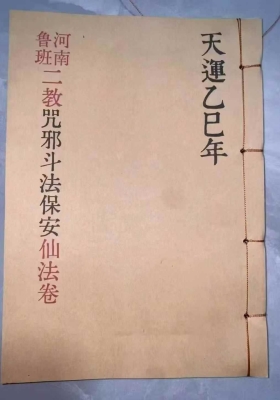 天運乙巳年
河南
魯班
二教咒邪斗法保安仙法卷